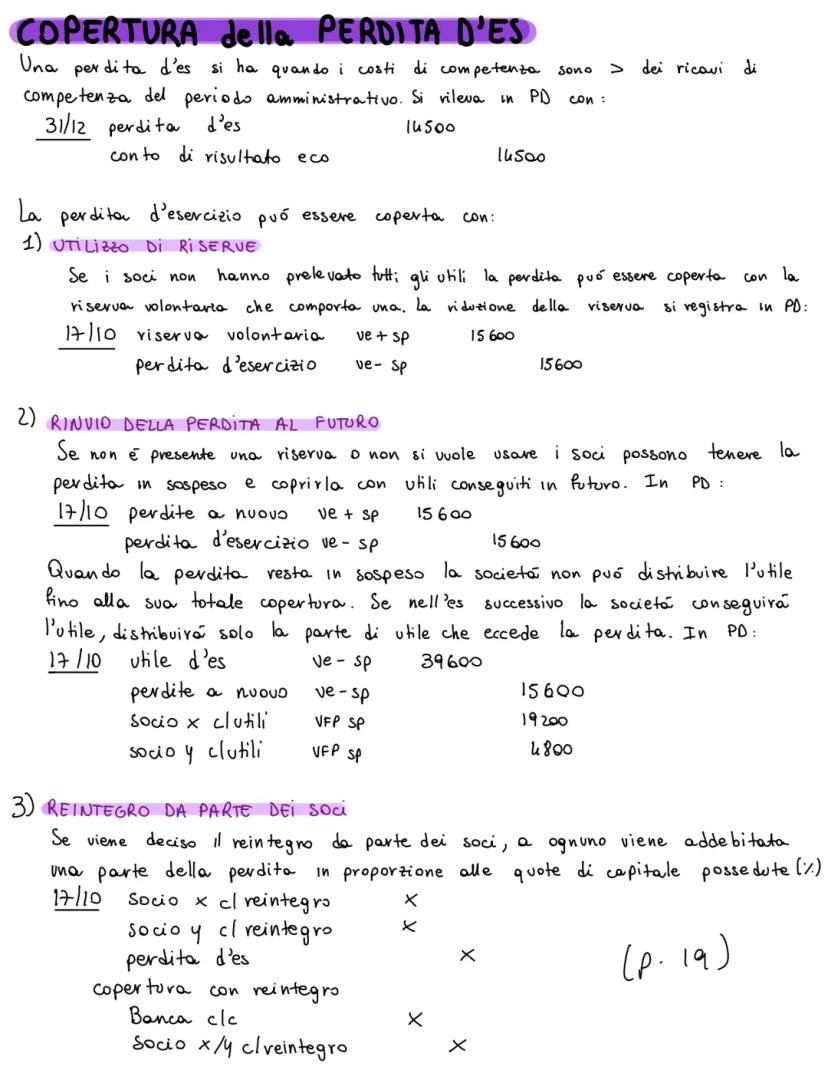 COPERTURA della PERDITA D'ES
Una perdita d'es si ha quando i costi di competenza sono > dei ricavi di
competenza del periodo amministrativo. Si rileva in PD con :
31/12 perdita d'es 14500
conto di risultato eco 14500
La perdita d'esercizio puó essere coperta con:
1) UTILIZZO DI RISERVE
Se i soci non hanno prelevato tutti gli utili la perdita puó essere coperta con la
riserva volontaria che comporta una. La riduzione della riserva si registra in PD:
17/10 riserva volontaria ve + sp 15600
perdita d'esercizio ve - sp 15600
2) RINVIO DELLA PERDITA AL FUTURO
Se non é presente una riserva o non si vuole usare i soci possono tenere la
perdita in sospeso e coprirla con utili conseguiti in futuro. In PD :
17/10 perdite a nuovo ve + sp 15600
perdita d'esercizio ve - sp 15600
Quando la perdita resta in sospeso la societá non puó distribuire l'utile
fino alla sua totale copertura. Se nell'es successivo la societá conseguirá
l'utile, distribuirá solo la parte di utile che eccede la perdita. In PD:
17/10 utile d'es ve - sp 39600
perdite a nuovo ve - sp 15600
socio x c/utili VFP sp 19200
socio y c/utili VFP sp 4800
3) REINTEGRO DA PARTE DEI SOCI
Se viene deciso il reintegro da parte dei soci, a ognuno viene addebitata
una parte della perdita in proporzione alle quote di capitale possedute (%)
17/10 Socio x c/ reintegro x
socio y c/ reintegro x
perdita d'es x
(p. 19)
copertura con reintegro
Banca c/c x
Socio x/y c/reintegro x